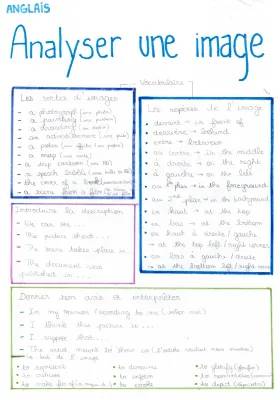 ANGLAIS
Analyser une image
Vocabulaire
Les sortes d'images
- a photograph (une photo)
- a painting (une peinture)
- a drawing (un dessin)
- an advertisement (une pub)
- a poster (une affiche / un poster)
- a map (une carte)
- a speech bubble
- the cover of a book
Les repères de l'image
- devant → in front of
- derrière → behind
- entre → between
- au centre → in the middle
- à droite → on the right
- à gauche → on the left
- au 1er plan → in the foreground
- au 2nd plan → in the background
- en haut → at the top
- en bas → at the bottom
- en haut à droite / gauche
→ at the top left / right corner
- en bas à gauche / droite
→ at the bottom left / right
Introduire la description
- We can see...
- The picture shows...
- The scene takes place in
- The document was
published in...
Donner son avis et interpréter
- In my opinion / according to me
- I think this picture is...
- I suppose that...
- The artist wanted to show us
le but de l'image
- to represent
- to denounce
- to glorify (glorifier)
- to criticise
- to make fun of
- to evoke
- to depict